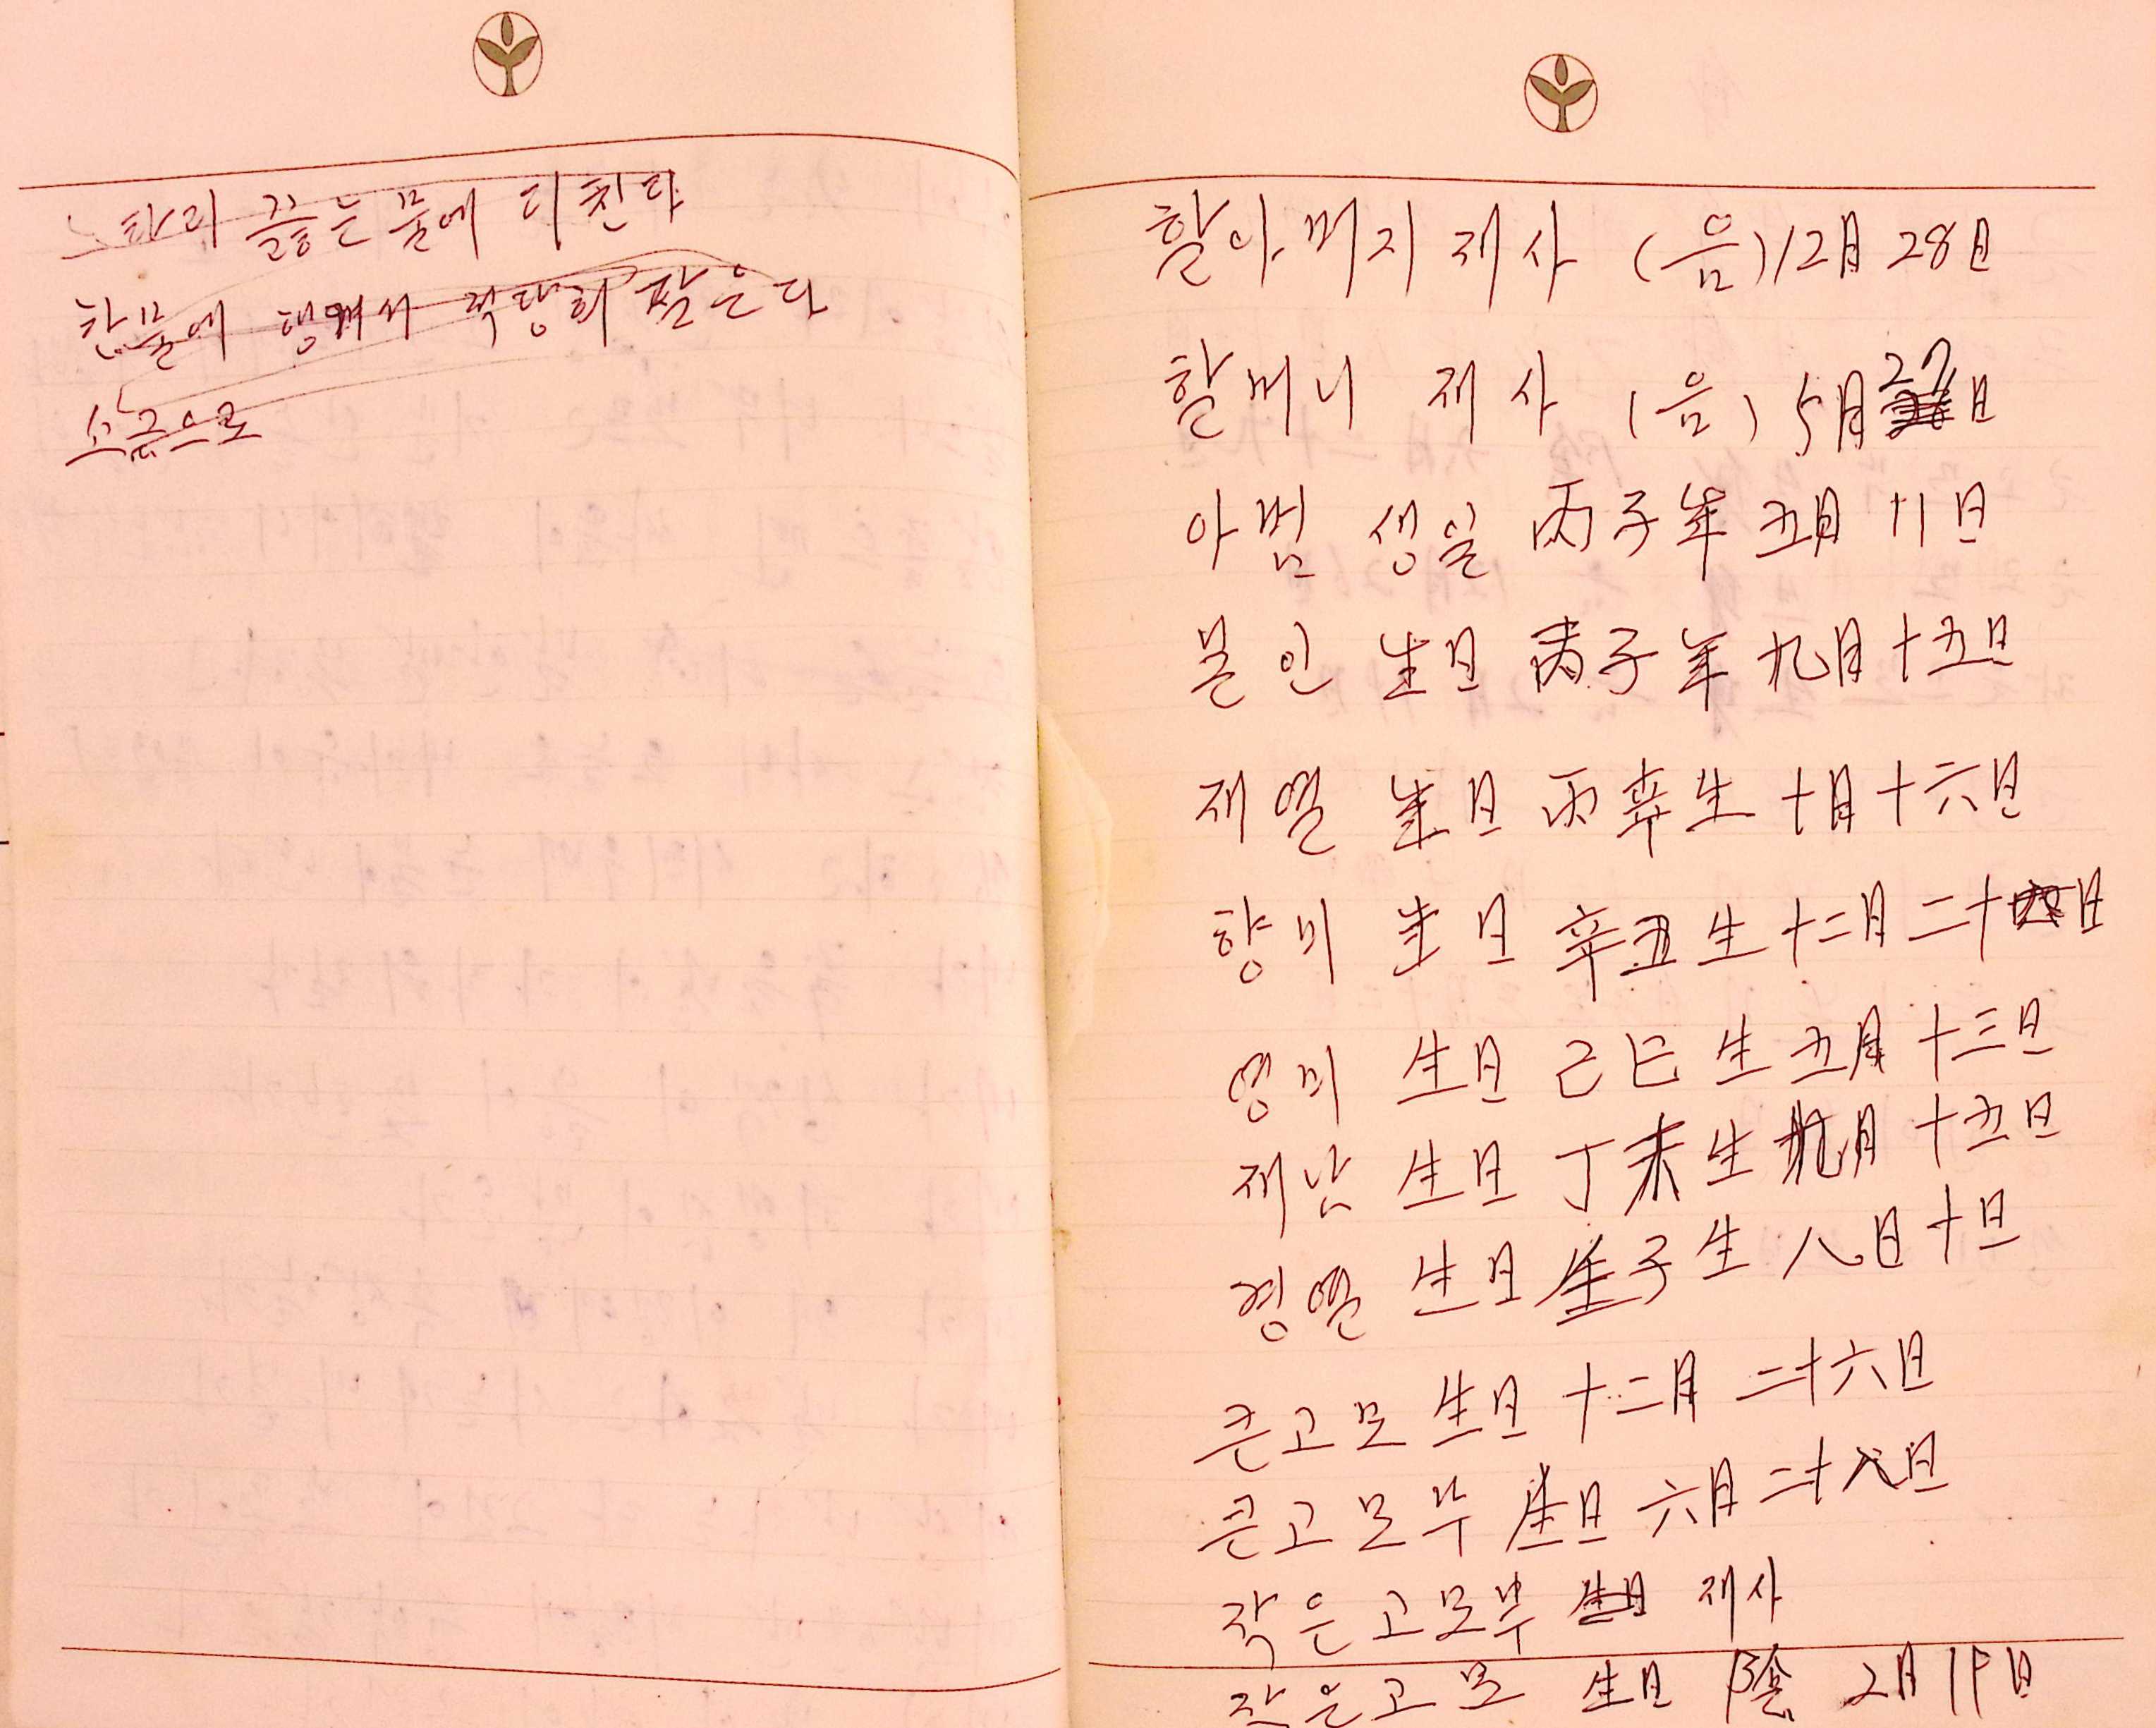 느타리 끓는 물에 디친다
찬물에 행겨서 적당히 짤은다
소금으로
할아버지 재사 (음)12月 28日
할머니 재사 (음) 5月 27日
아범 생일 丙子年 五月 11日
본인 生日 丙子年 九月 十五日
재열 生日 丙 生 十月 十六日
향미 生日 辛丑生 十二月 二十 日
영미 生日 己巳 生 五月 十三日
재남 生日 丁未生 九月 十五日
형열 生日 子生 八日 十日
큰고모 生日 十二月 二十六日
큰고모부 生日 六月 二十八日
작은고모부 재사
작은고모 生日 陰 2月 19日